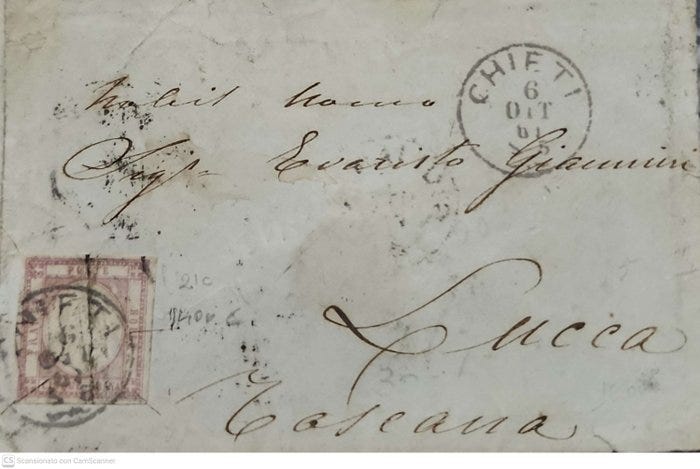 CHIETI
6
OTT
61
Nobil Uomo
Sigr Evaristo Giannini
Lucca
Toscana
21c
POSTE
CHIETI
6
CS Scansionato con CamScanner